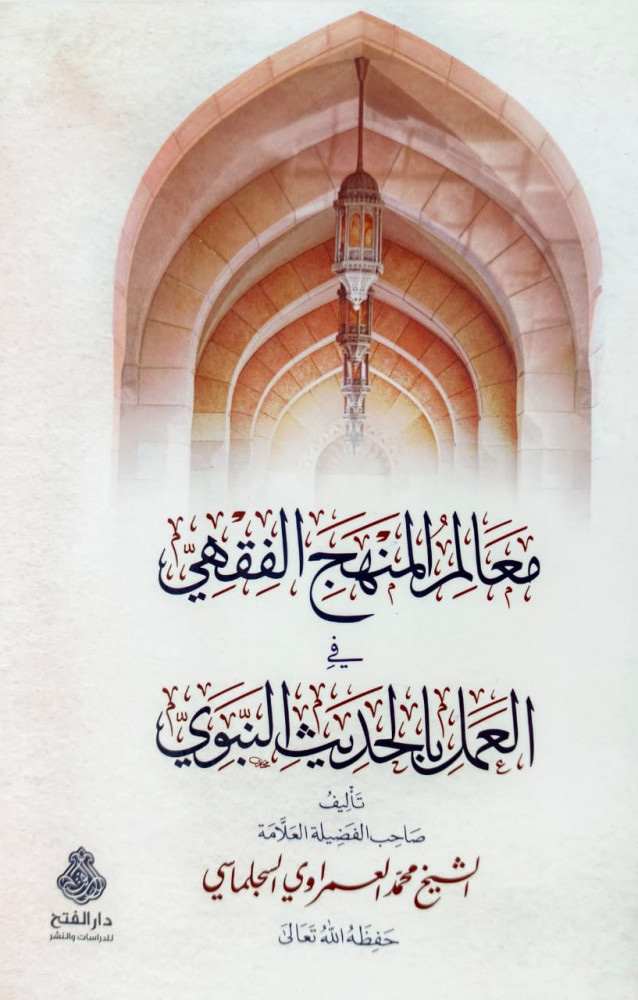 مَعَالِمُ المَنْهَجِ الفِقْهِيِّ
فِي
العَمَلِ بِالحَدِيثِ النَّبَوِيِّ
تَألِيفُ
صَاحِبِ الفَضِيلَةِ العَلَّامَةِ
الشيخ محمد العمراوي السجلماسي
حَفِظَهُ اللهُ تَعَالَىٰ
دار الفتح
للدراسات والنشر